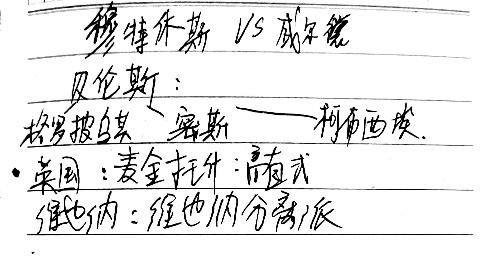 穆特休斯 VS 威尔德
贝伦斯：
格罗披乌其 密斯 —— 柯布西埃.
• 英国：麦金托什：高直式
维也纳：维也纳分离派